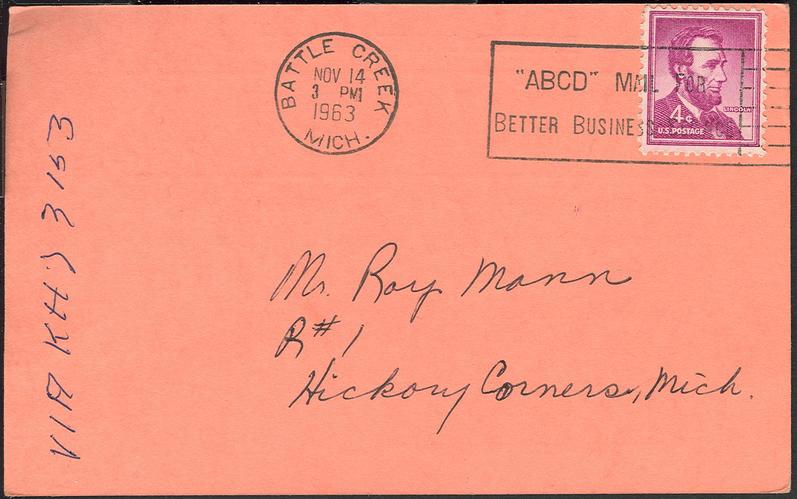 BATTLE CREEK
NOV 14
3 PM
1963
MICH.
"ABCD" MAIL FOR
BETTER BUSINESS
LINCOLN
4¢
U.S. POSTAGE
Mr. Roy Mann
R#1
Hickory Corners, Mich.
VIA
3153